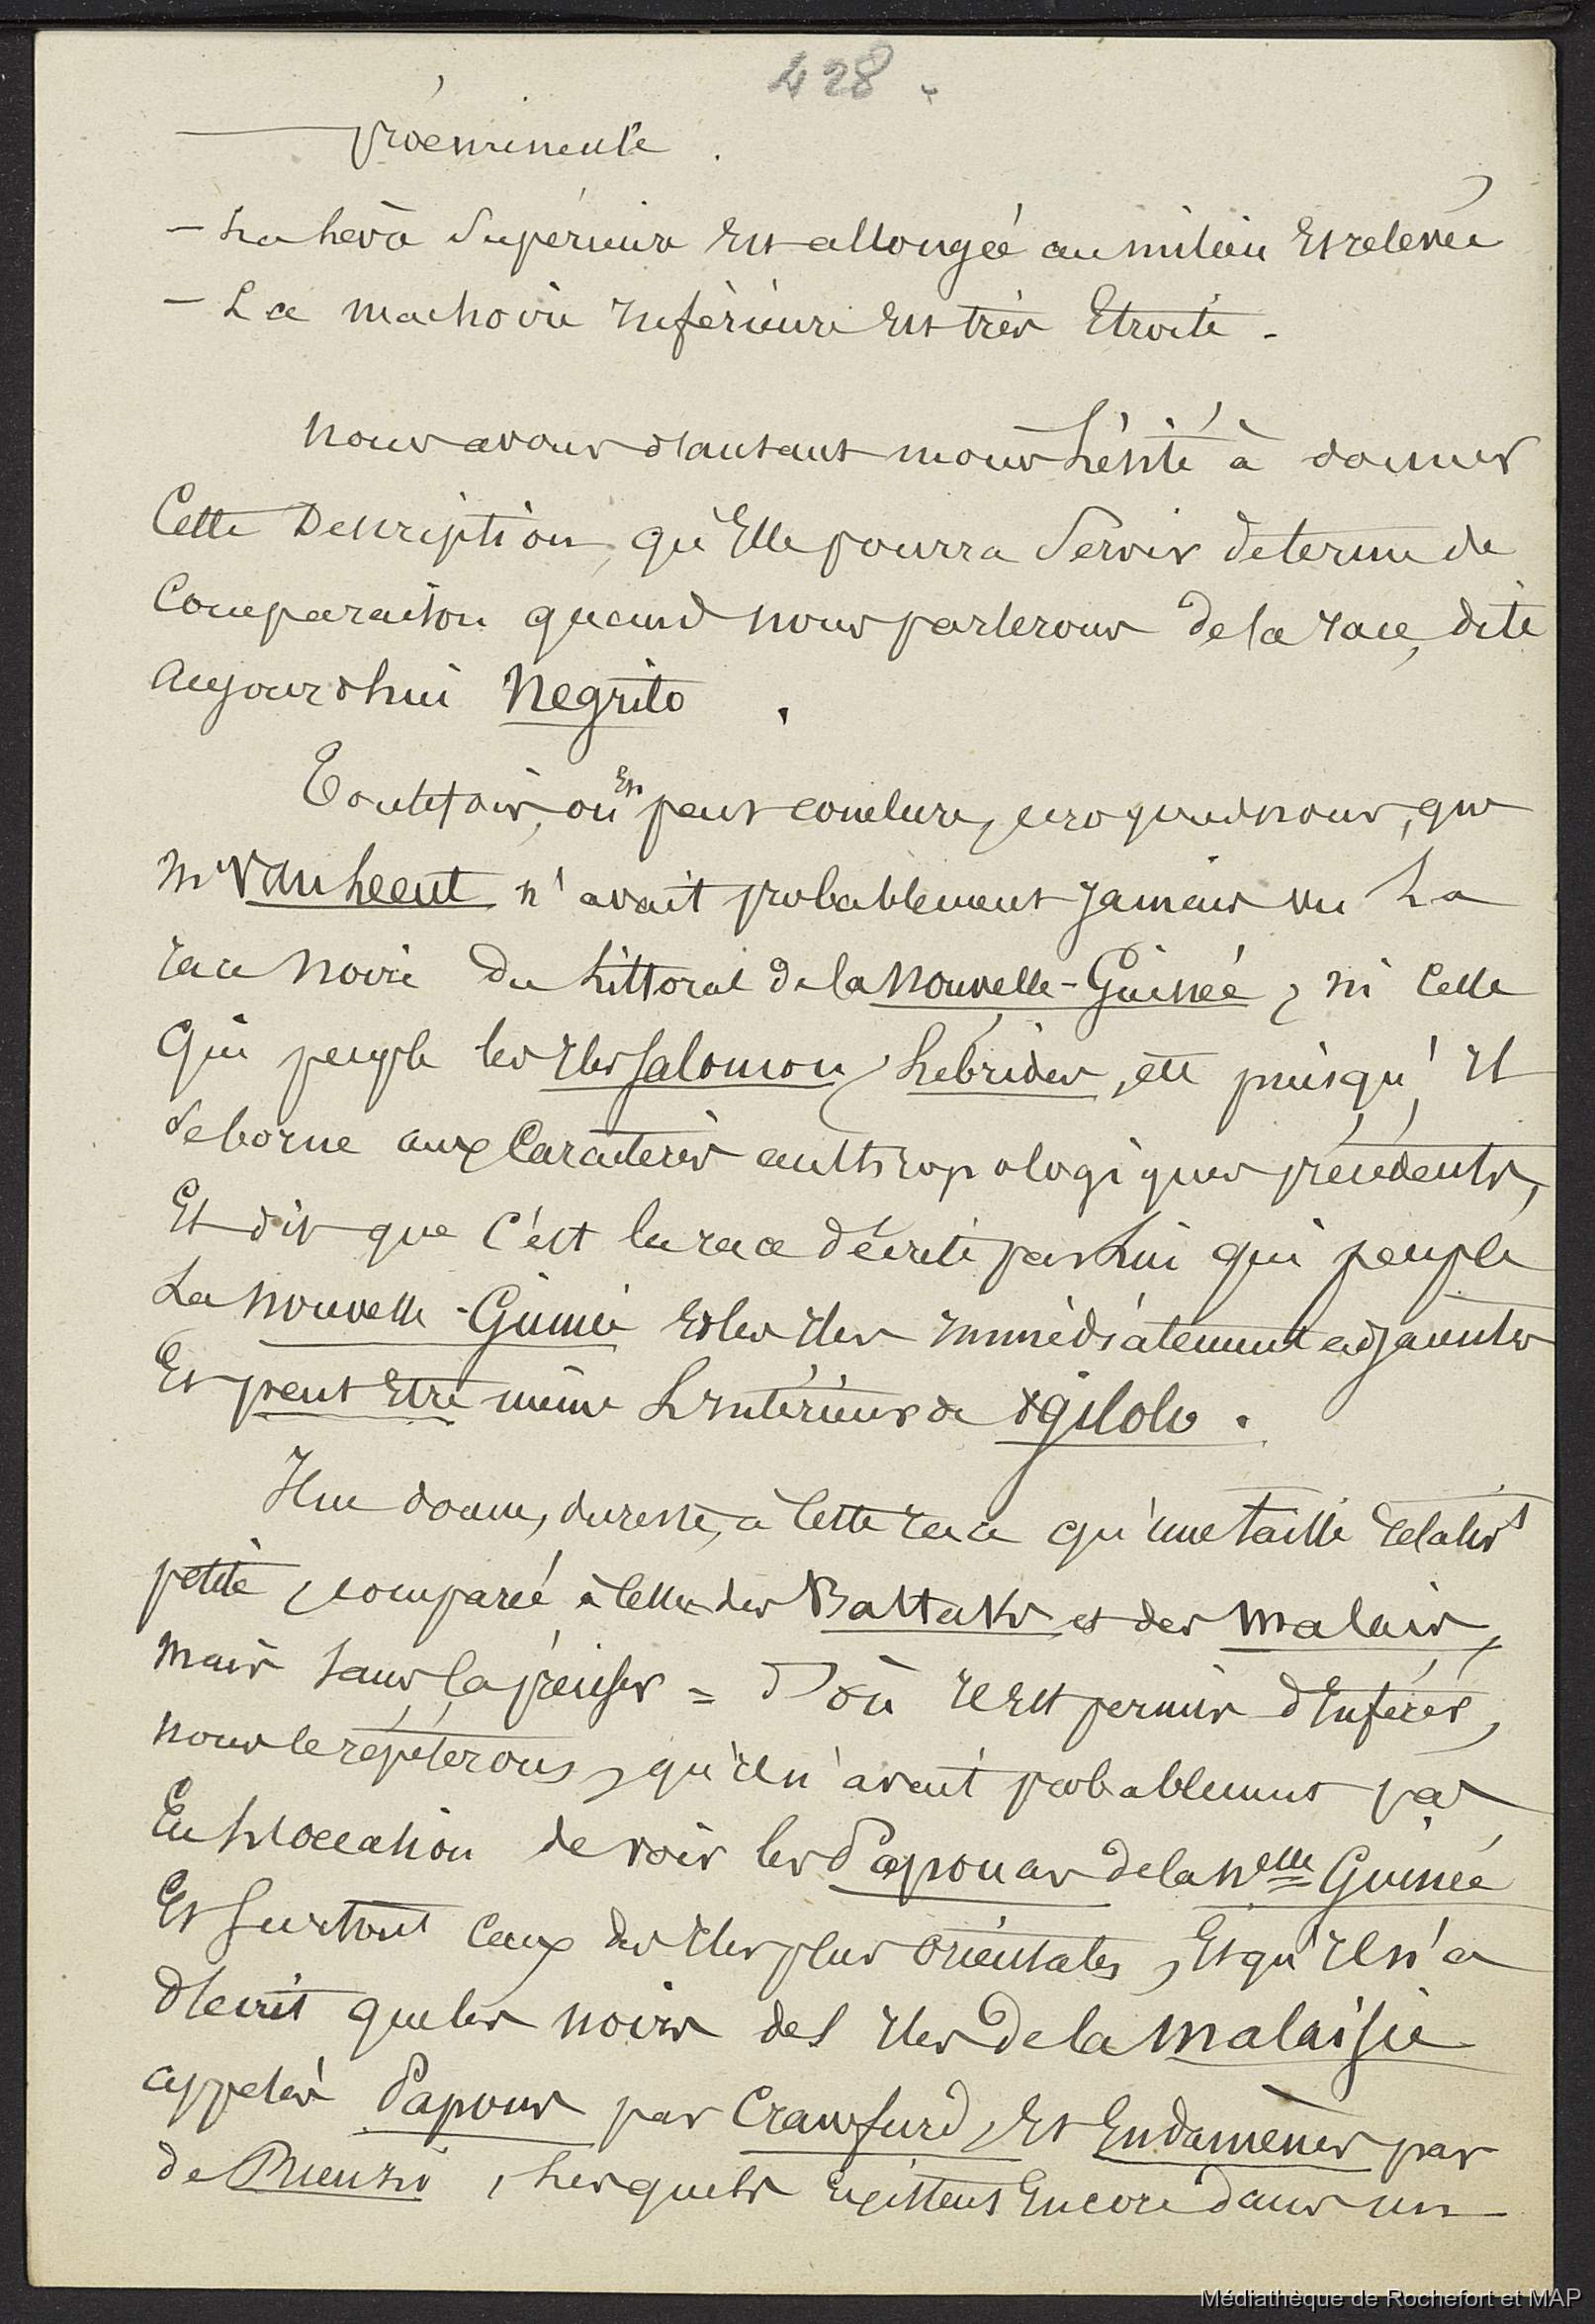 428.
proeminente.
- La levre Superieure Est allongée au milieu Et relevée
- La machoire Inférieure Est très Etroite.
Nous avons d'autant moins hésité à donner
Cette Description, qu'Elle pourra Servir de terme de
Comparaison quand nous parlerons de la race, dite
Aujourdhui Negrito.
Toutefois, on En peut conclure, croyons nous, que
Mr Van Leent n'avait probablement jamais vu La
race noire du Littoral de la Nouvelle-Guinée, ni Celle
Qui peuple les Iles Salomon, hébrides, etc puisqu'Il
Se borne aux Caractères anthropologiques précédents,
Et dit que C'est la race décrite par Lui qui peuple
La Nouvelle-Guinée Et les Iles Immédiatement adjacentes
Et peut Etre même L'Intérieur de Gilolo.
Il ne donne, du reste, à Cette race qu'une taille relativt
petite, comparée à Celle des Battaks et des Malais,
Mais sans la préciser = D'où Il Est permis d'Inférer,
nous le répéterons, qu'Il n'avait probablement pas
Eu L'occasion de voir les Papouas de la Nelle Guinée
Et Surtout Ceux des Iles plus orientales, Et qu'Il n'a
décrit que les noirs des Iles de la Malaisie
appelés Papous par Crawfurd, Et Endamènes par
de Rienzi, Lesquels Existent Encore dans un
Médiathèque de Rochefort et MAP